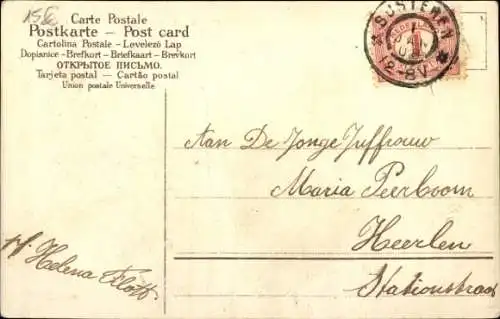 15c
Carte Postale
Postkarte – Post card
Cartolina Postale – Levelező Lap
Dopisnice – Brefkort – Briefkaart – Brevkort
ОТКРЫТОЕ ПИСЬМО.
Tarjeta postal – Cartão postal
Union postale Universelle
SUSTEREN
NEDERLAND
1
12-8V
Aan De Jonge Juffrouw
Maria Peerboom
Heerlen
Stationstraat
Helena